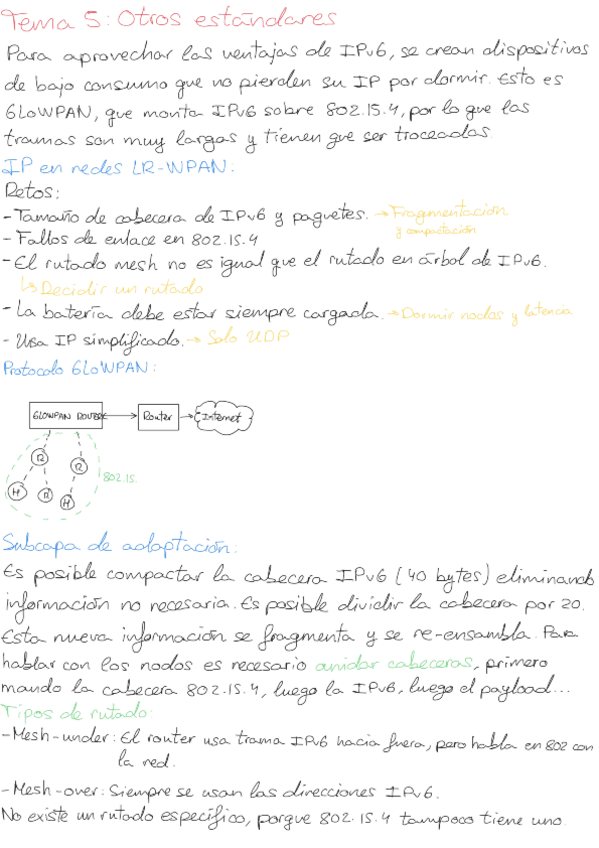 Tema 5: Otros estándares
Para aprovechar las ventajas de IPv6, se crean dispositivos
de bajo consumo que no pierden su IP por dormir. Esto es
6LoWPAN, que monta IPv6 sobre 802.15.4, por lo que las
tramas son muy largas y tienen que ser troceadas.
IP en redes LR-WPAN:
Retos:
- Tamaño de cabecera de IPv6 y paquetes. → Fragmentación
y compactación
- Fallos de enlace en 802.15.4
- El rutado mesh no es igual que el rutado en árbol de IPv6.
↳ Decidir un rutado
- La batería debe estar siempre cargada. → Dormir nodos y latencia
- Usa IP simplificado. → Solo UDP
Protocolo 6LoWPAN:
6LOWPAN ROUTER Router Internet
R
R
802.15.
H R H
Subcapa de adaptación:
Es posible compactar la cabecera IPv6 (40 bytes) eliminando
información no necesaria. Es posible dividir la cabecera por 20.
Esta nueva información se fragmenta y se re-ensambla. Para
hablar con los nodos es necesario anidar cabeceras, primero
mando la cabecera 802.15.4, luego la IPv6, luego el payload...
Tipos de rutado:
- Mesh-under: El router usa trama IPv6 hacia fuera, pero habla en 802 con
la red.
- Mesh-over: Siempre se usan las direcciones IPv6.
No existe un rutado específico, porque 802.15.4 tampoco tiene uno.